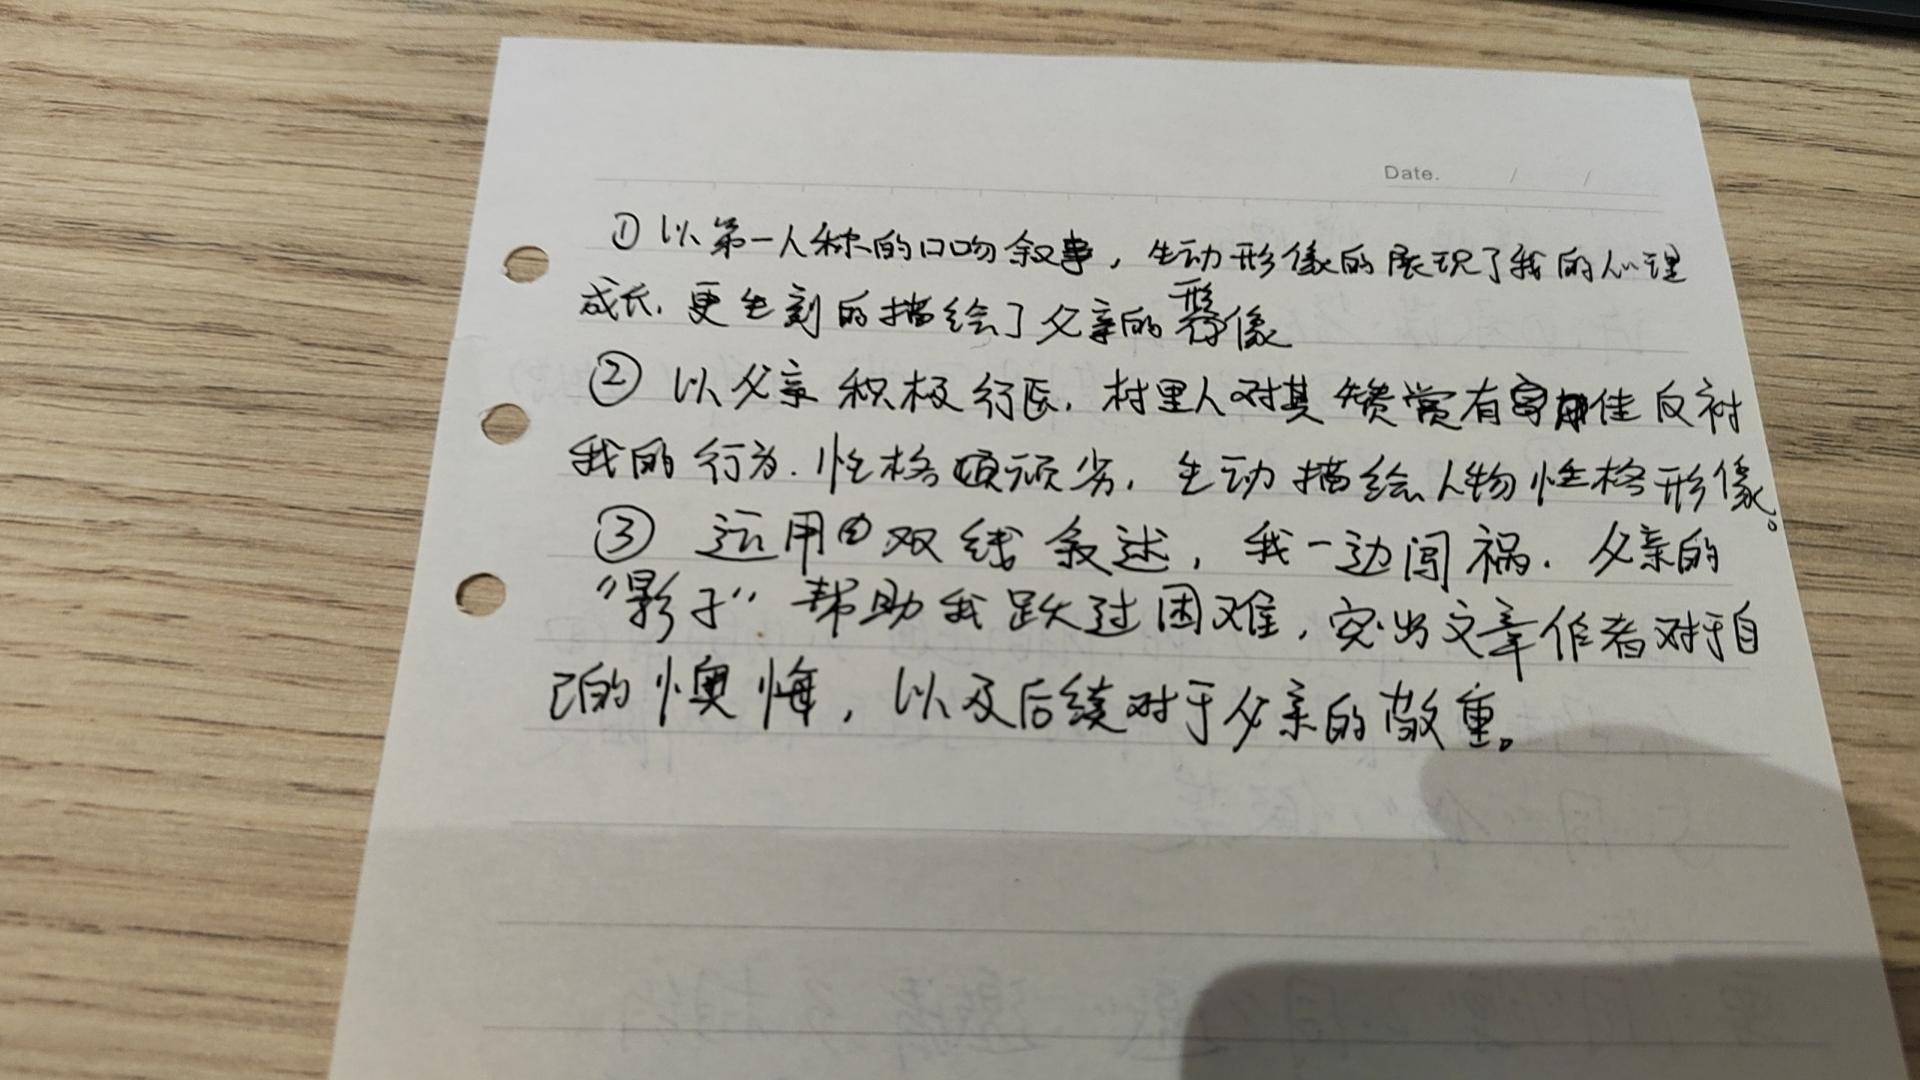 Date. / /
①以第一人称的口吻叙事，生动形像的展现了我的心理
成长，更生刻的描绘了父亲的形像
②以父亲积极行医，村里人对其赞赏有佳反衬
我的行为.性格顽劣，生动描绘人物性格形像。
③运用双线叙述，我一边闯祸.父亲的
“影子”帮助我跃过困难，突出文章作者对于自
己的懊悔，以及后续对于父亲的敬重。